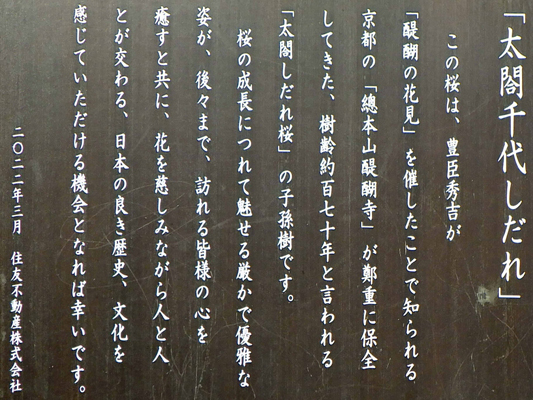 「太閤千代しだれ」
この桜は、豊臣秀吉が
「醍醐の花見」を催したことで知られる
京都の「總本山醍醐寺」が鄭重に保全
してきた、樹齢約百七十年と言われる
「太閤しだれ桜」の子孫樹です。
桜の成長につれて魅せる厳かで優雅な
姿が、後々まで、訪れる皆様の心を
癒すと共に、花を慈しみながら人と人
とが交わる、日本の良き歴史、文化を
感じていただける機会となれば幸いです。
二〇二二年三月 住友不動産株式会社